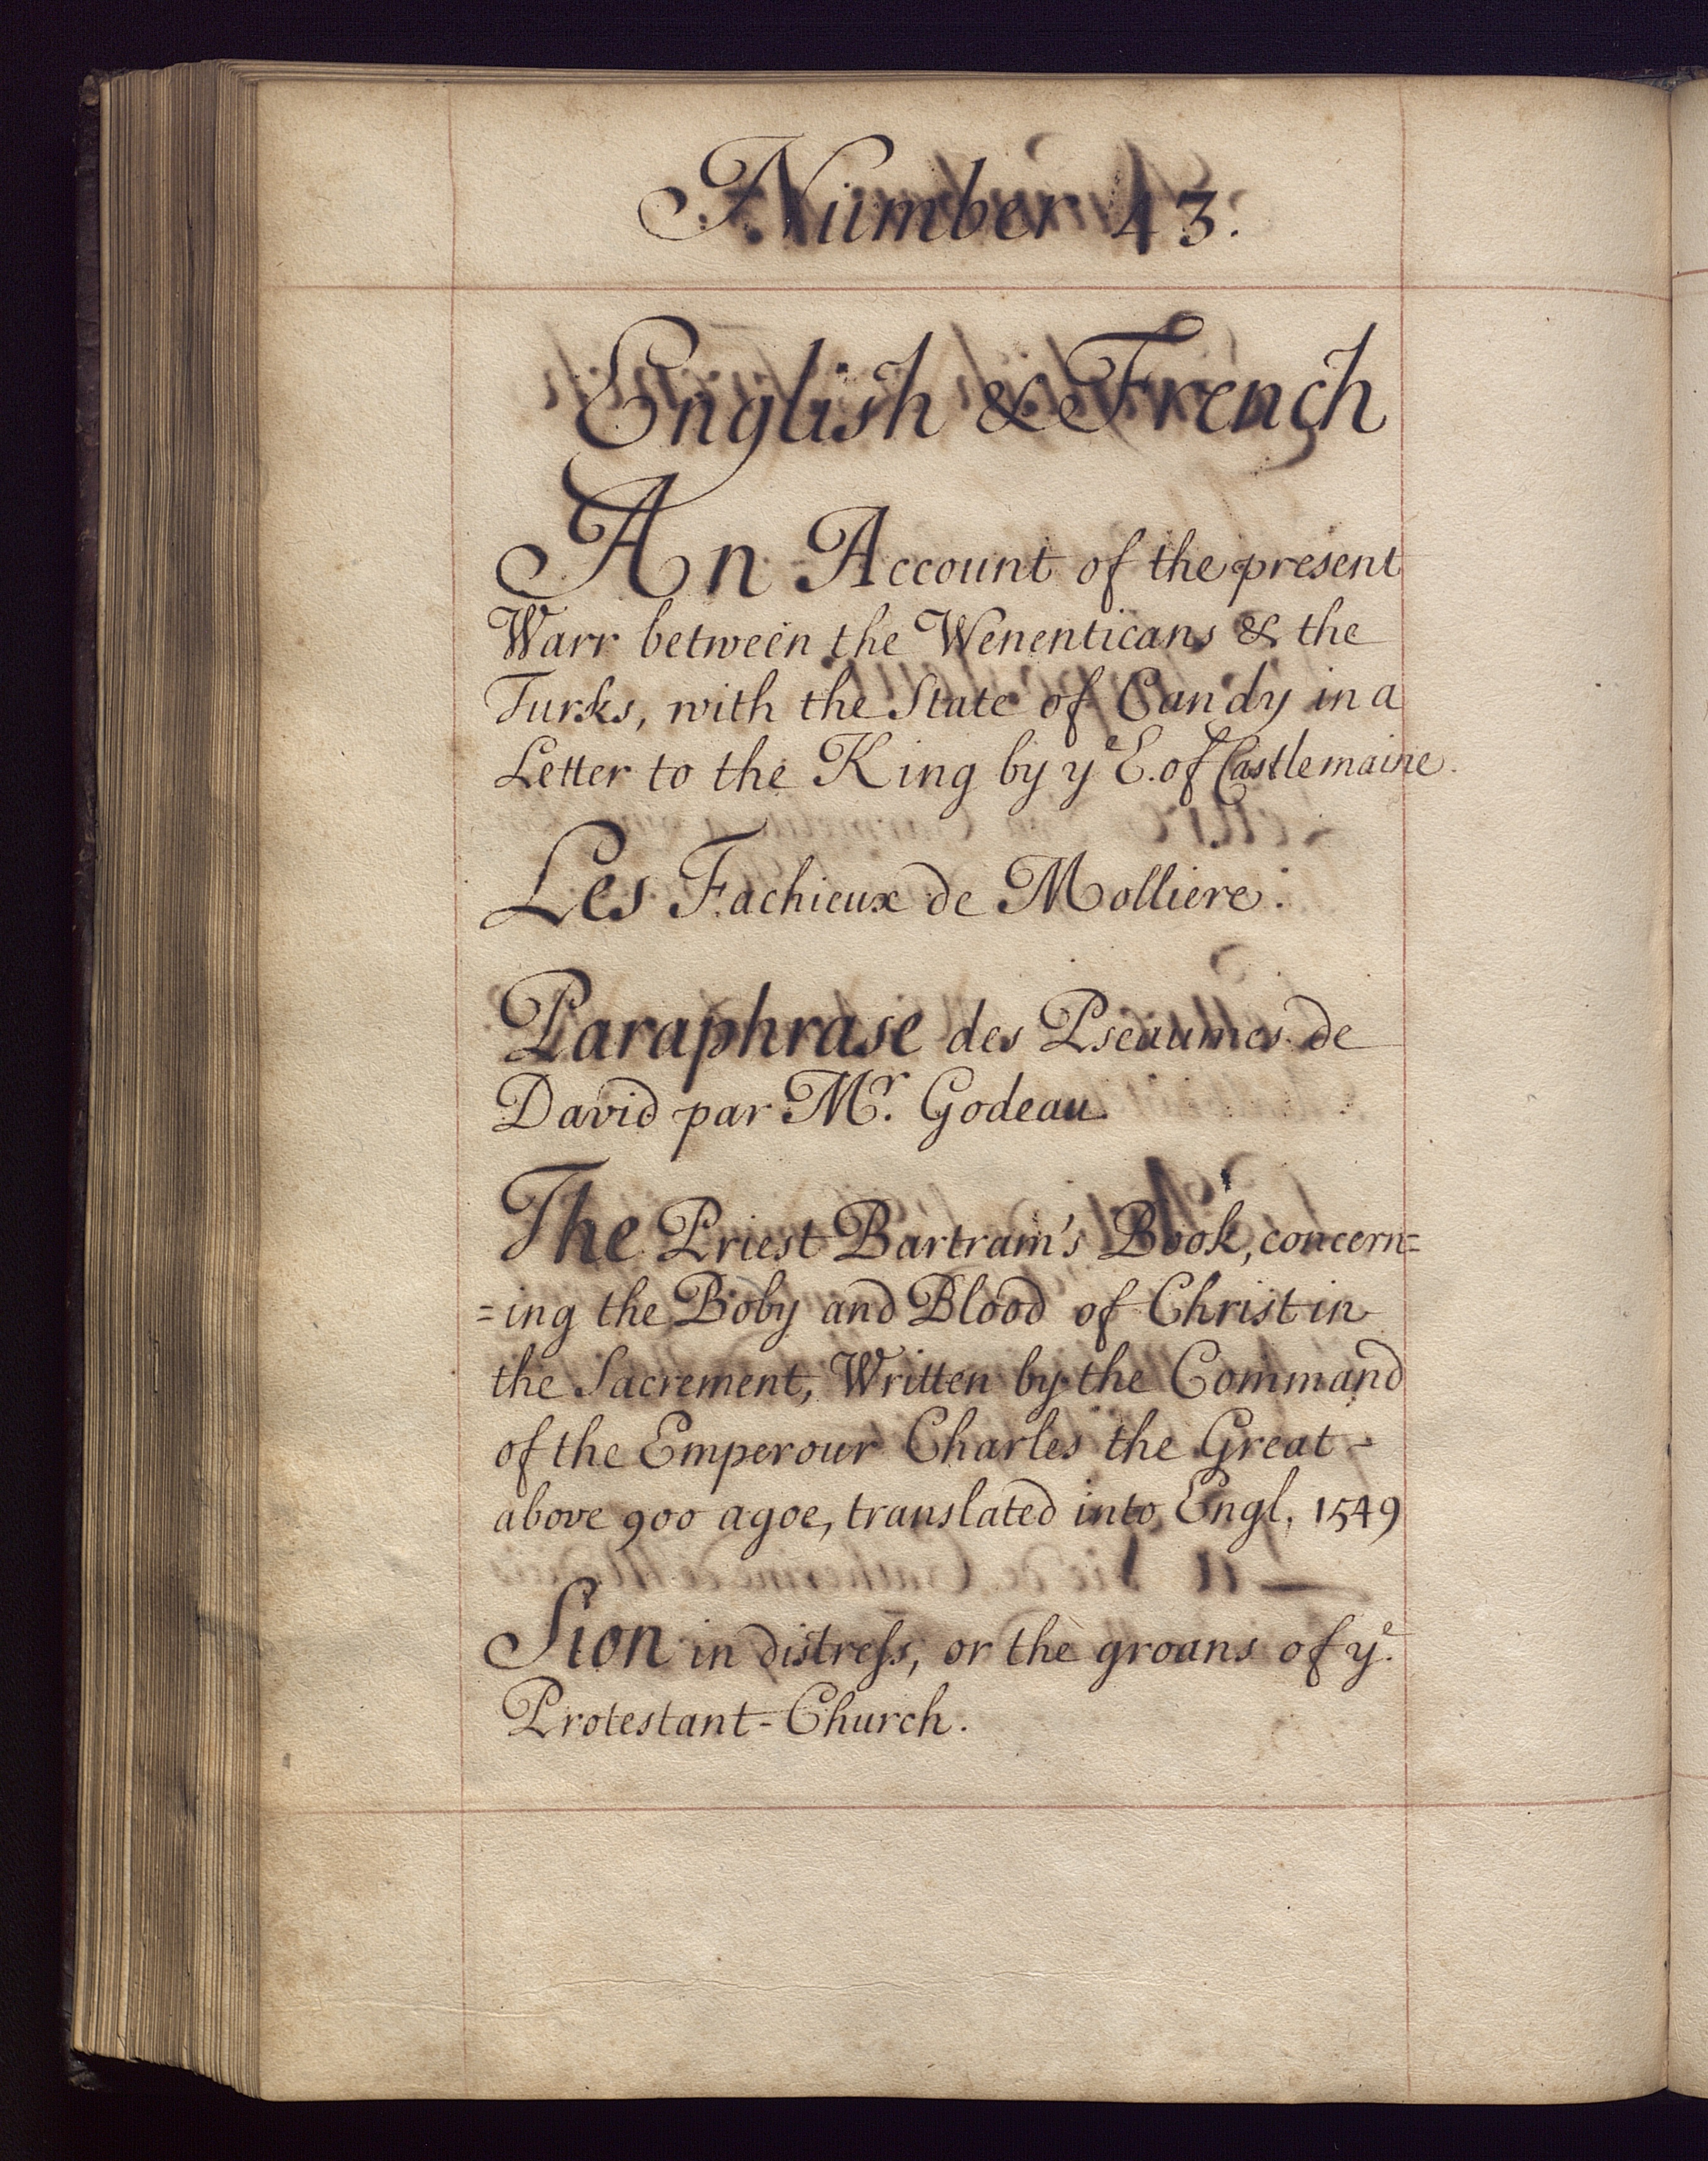 Number 43.
English & French
An Account of the present
Warr between the Wenenticans & the
Turks, with the State of Candy in a
Letter to the King by yᵉ E. of Castlemaine.
Les Fachieux de Molliere.
Paraphrase des Pseaumes de
David par Mʳ. Godeau
The Priest Bartram's Book, concern=
=ing the Boby and Blood of Christ in
the Sacrement, Written by the Command
of the Emperour Charles the Great -
above 900 agoe, translated into Engl. 1549
Sion in distreſs, or the groans of yᵉ.
Protestant-Church.